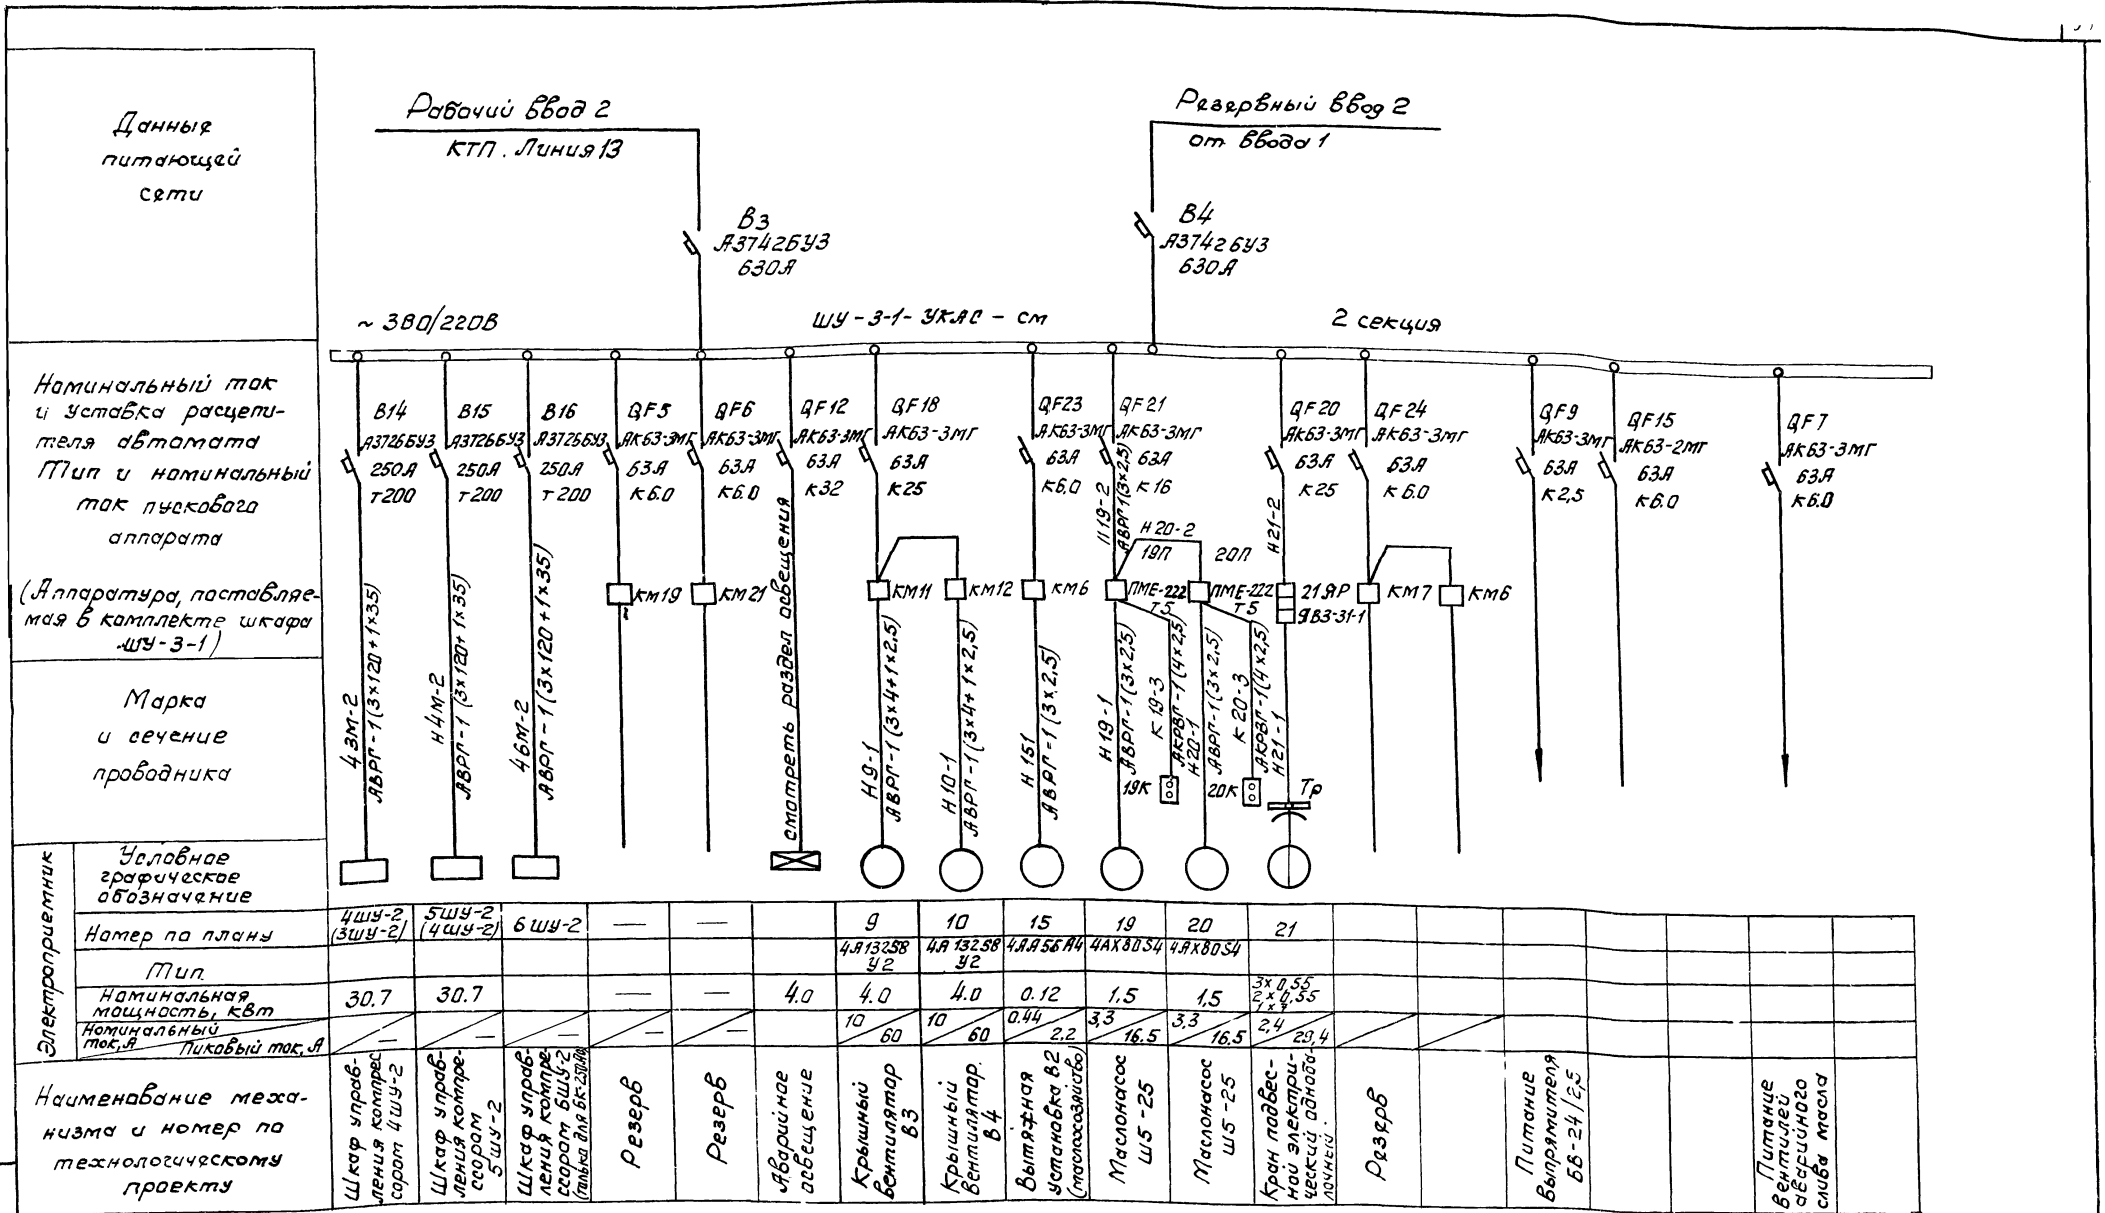 Рабочий ввод 2
КТП. Линия 13
Резервный ввод 2
от ввода 1
Данные
питающей
сети
В3
А3742БУ3
630А
В4
А3742БУ3
630А
~ 380/220В
ШУ-3-1-УКАС-СМ
2 секция
Номинальный ток
и уставка расцепи-
теля автомата
Тип и номинальный
ток пускового
аппарата
(Аппаратура, поставляе-
мая в комплекте шкафа
ШУ-3-1)
В14
А3726БУ3
250А
Т200
В15
А3726БУ3
250А
Т200
В16
А3726БУ3
250А
Т200
QF5
АК63-3МГ
63А
К6.0
QF6
АК63-3МГ
63А
К6.0
QF12
АК63-3МГ
63А
К32
QF18
АК63-3МГ
63А
К25
QF23
АК63-3МГ
63А
К6.0
QF21
АК63-3МГ
63А
К16
QF20
АК63-3МГ
63А
К25
QF24
АК63-3МГ
63А
К6.0
QF9
АК63-3МГ
63А
К2,5
QF15
АК63-2МГ
63А
К6.0
QF7
АК63-3МГ
63А
К6.0
КМ19
КМ21
КМ11
КМ12
КМ6
П19-2
АВРГ1(3×2,5)
Н20-2
19П
ПМЕ-222
Т5
20П
ПМЕ-222
Т5
Н21-2
21ЯР
ЯВЗ-31-1
КМ7
КМ6
Марка
и сечение
проводника
43М-2
АВРГ-1(3×120+1×35)
Н4М-2
АВРГ-1(3×120+1×35)
46М-2
АВРГ-1(3×120+1×35)
смотреть раздел освещения
Н9-1
АВРГ-1(3×4+1×2,5)
Н10-1
АВРГ-1(3×4+1×2,5)
Н151
АВРГ-1(3×2,5)
Н19-1
АВРГ-1(3×2,5)
К19-3
АКРВГ-1(4×2,5)
19К
Н20-1
АВРГ-1(3×2,5)
К20-3
АКРВГ-1(4×2,5)
20К
Н21-1
Тр
Электроприемник
Условное
графическое
обозначение
Номер по плану
4ШУ-2
(3ШУ-2)
5ШУ-2
(4ШУ-2)
6ШУ-2
—
—
9
10
15
19
20
21
Тип
4А132S8
У2
4А132S8
У2
4АА56А4
4АХ80S4
4АХ80S4
Номинальная
мощность, кВт
30.7
30.7
—
—
4.0
4.0
4.0
0.12
1.5
1,5
3×0,55
2×0,55
Номинальный
ток, А
Пиковый ток, А
—
—
—
—
—
—
10
60
10
60
0.44
2,2
3,3
16.5
3,3
16.5
2,4
29,4
Наименование меха-
низма и номер по
технологическому
проекту
Шкаф управ-
ления компрес
сором 4ШУ-2
Шкаф управ-
ления компре-
ссором
5ШУ-2
Шкаф управ-
ления компре-
ссором 6ШУ-2
Резерв
Резерв
Аварийное
освещение
Крышный
вентилятор
В3
Крышный
вентилятор.
В4
Вытяжная
установка В2
(маслохозяйство)
Маслонасос
Ш5-25
Маслонасос
Ш5-25
Кран подвес-
ной электри-
ческий однобa-
лочный.
Резерв
Питание
выпрямителя
БВ-24/2,5
Питание
вентилей
аварийного
слива масла